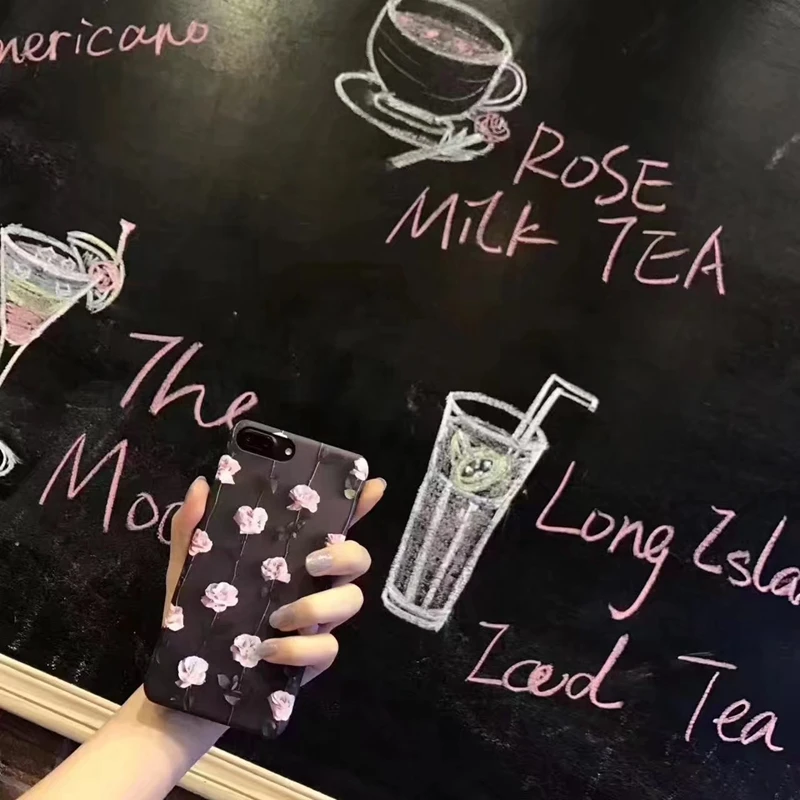 mericano
ROSE
MilK TEA
The
Moo
Long Isla
Iced Tea